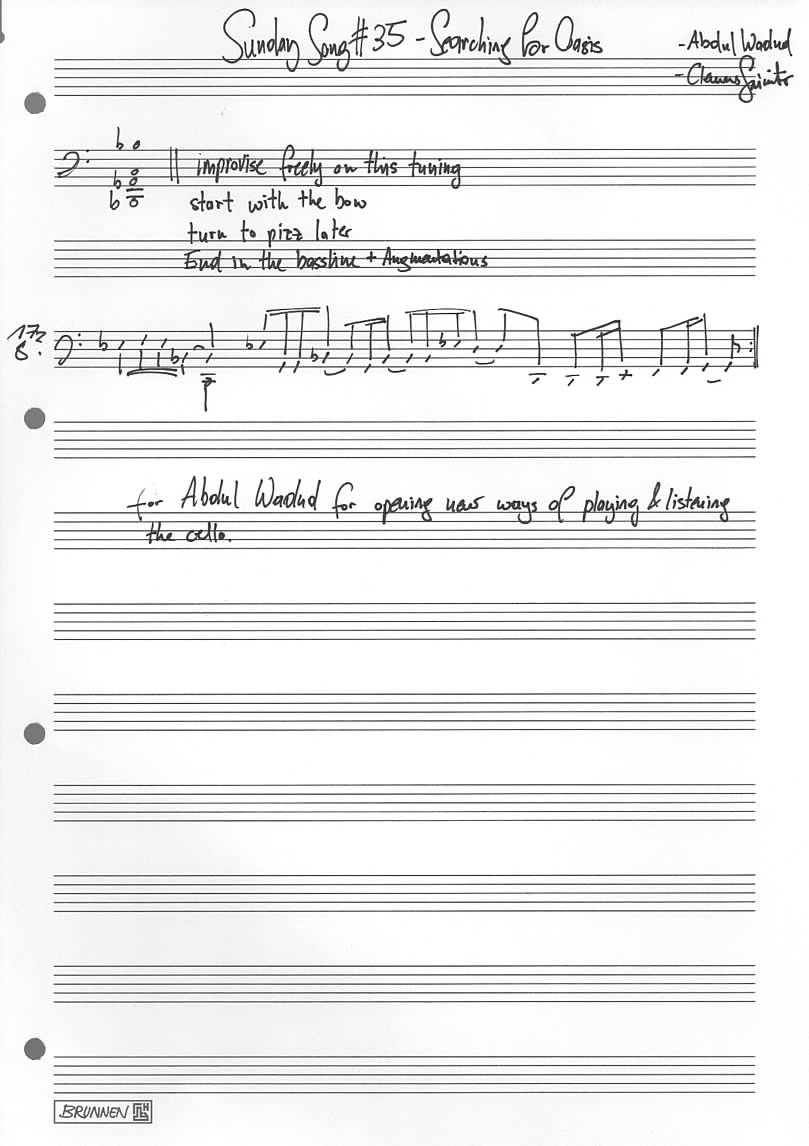 Sunday Song # 35 - Searching for Oasis
- Abdul Wadud
- Clemens
improvise freely on this tuning
start with the bow
turn to pizz later
End in the bassline + Augmentations
17/8
for Abdul Wadud for opening new ways of playing & listening
the cello.
BRUNNEN